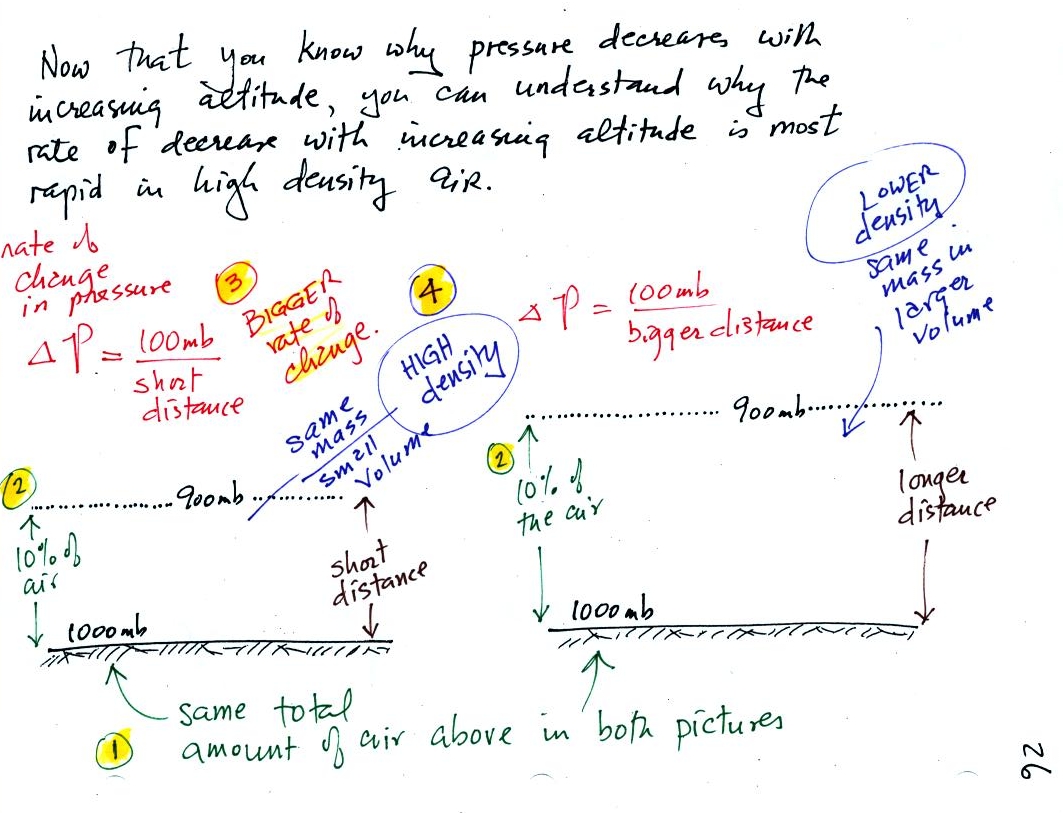 Now that you know why pressure decreases with
increasing altitude, you can understand why the
rate of decrease with increasing altitude is most
rapid in high density air.
rate of
change
in pressure
ΔP = 100mb
short
distance
3
BIGGER
rate of
change.
4
HIGH
density
same
mass
small
volume
2
900mb
10% of
air
short
distance
1000mb
ΔP = 100mb
bigger distance
LOWER
density
same
mass in
larger
volume
900mb
2
10% of
the air
longer
distance
1000mb
1
same total
amount of air above in both pictures
26